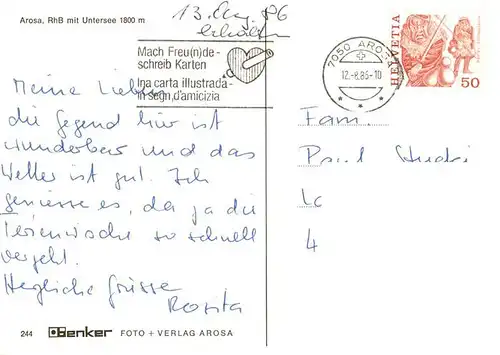 Arosa, RhB mit Untersee 1800 m
13. Aug. 86
erhalten
Mach Freu(n)de-
schreib Karten
Ina carta illustrada-
in segn d'amicizia
7050 AROSA
12.-8.86-10
HELVETIA
50
Meine Lieben
die Gegend hier ist
wunderbar und das
Wetter ist gut. Ich
geniesse es, da ja die
Ferienwoche so schnell
vergeht.
Herzliche Grüsse
Rosita
Fam.
Paul
4
244 Benker FOTO + VERLAG AROSA